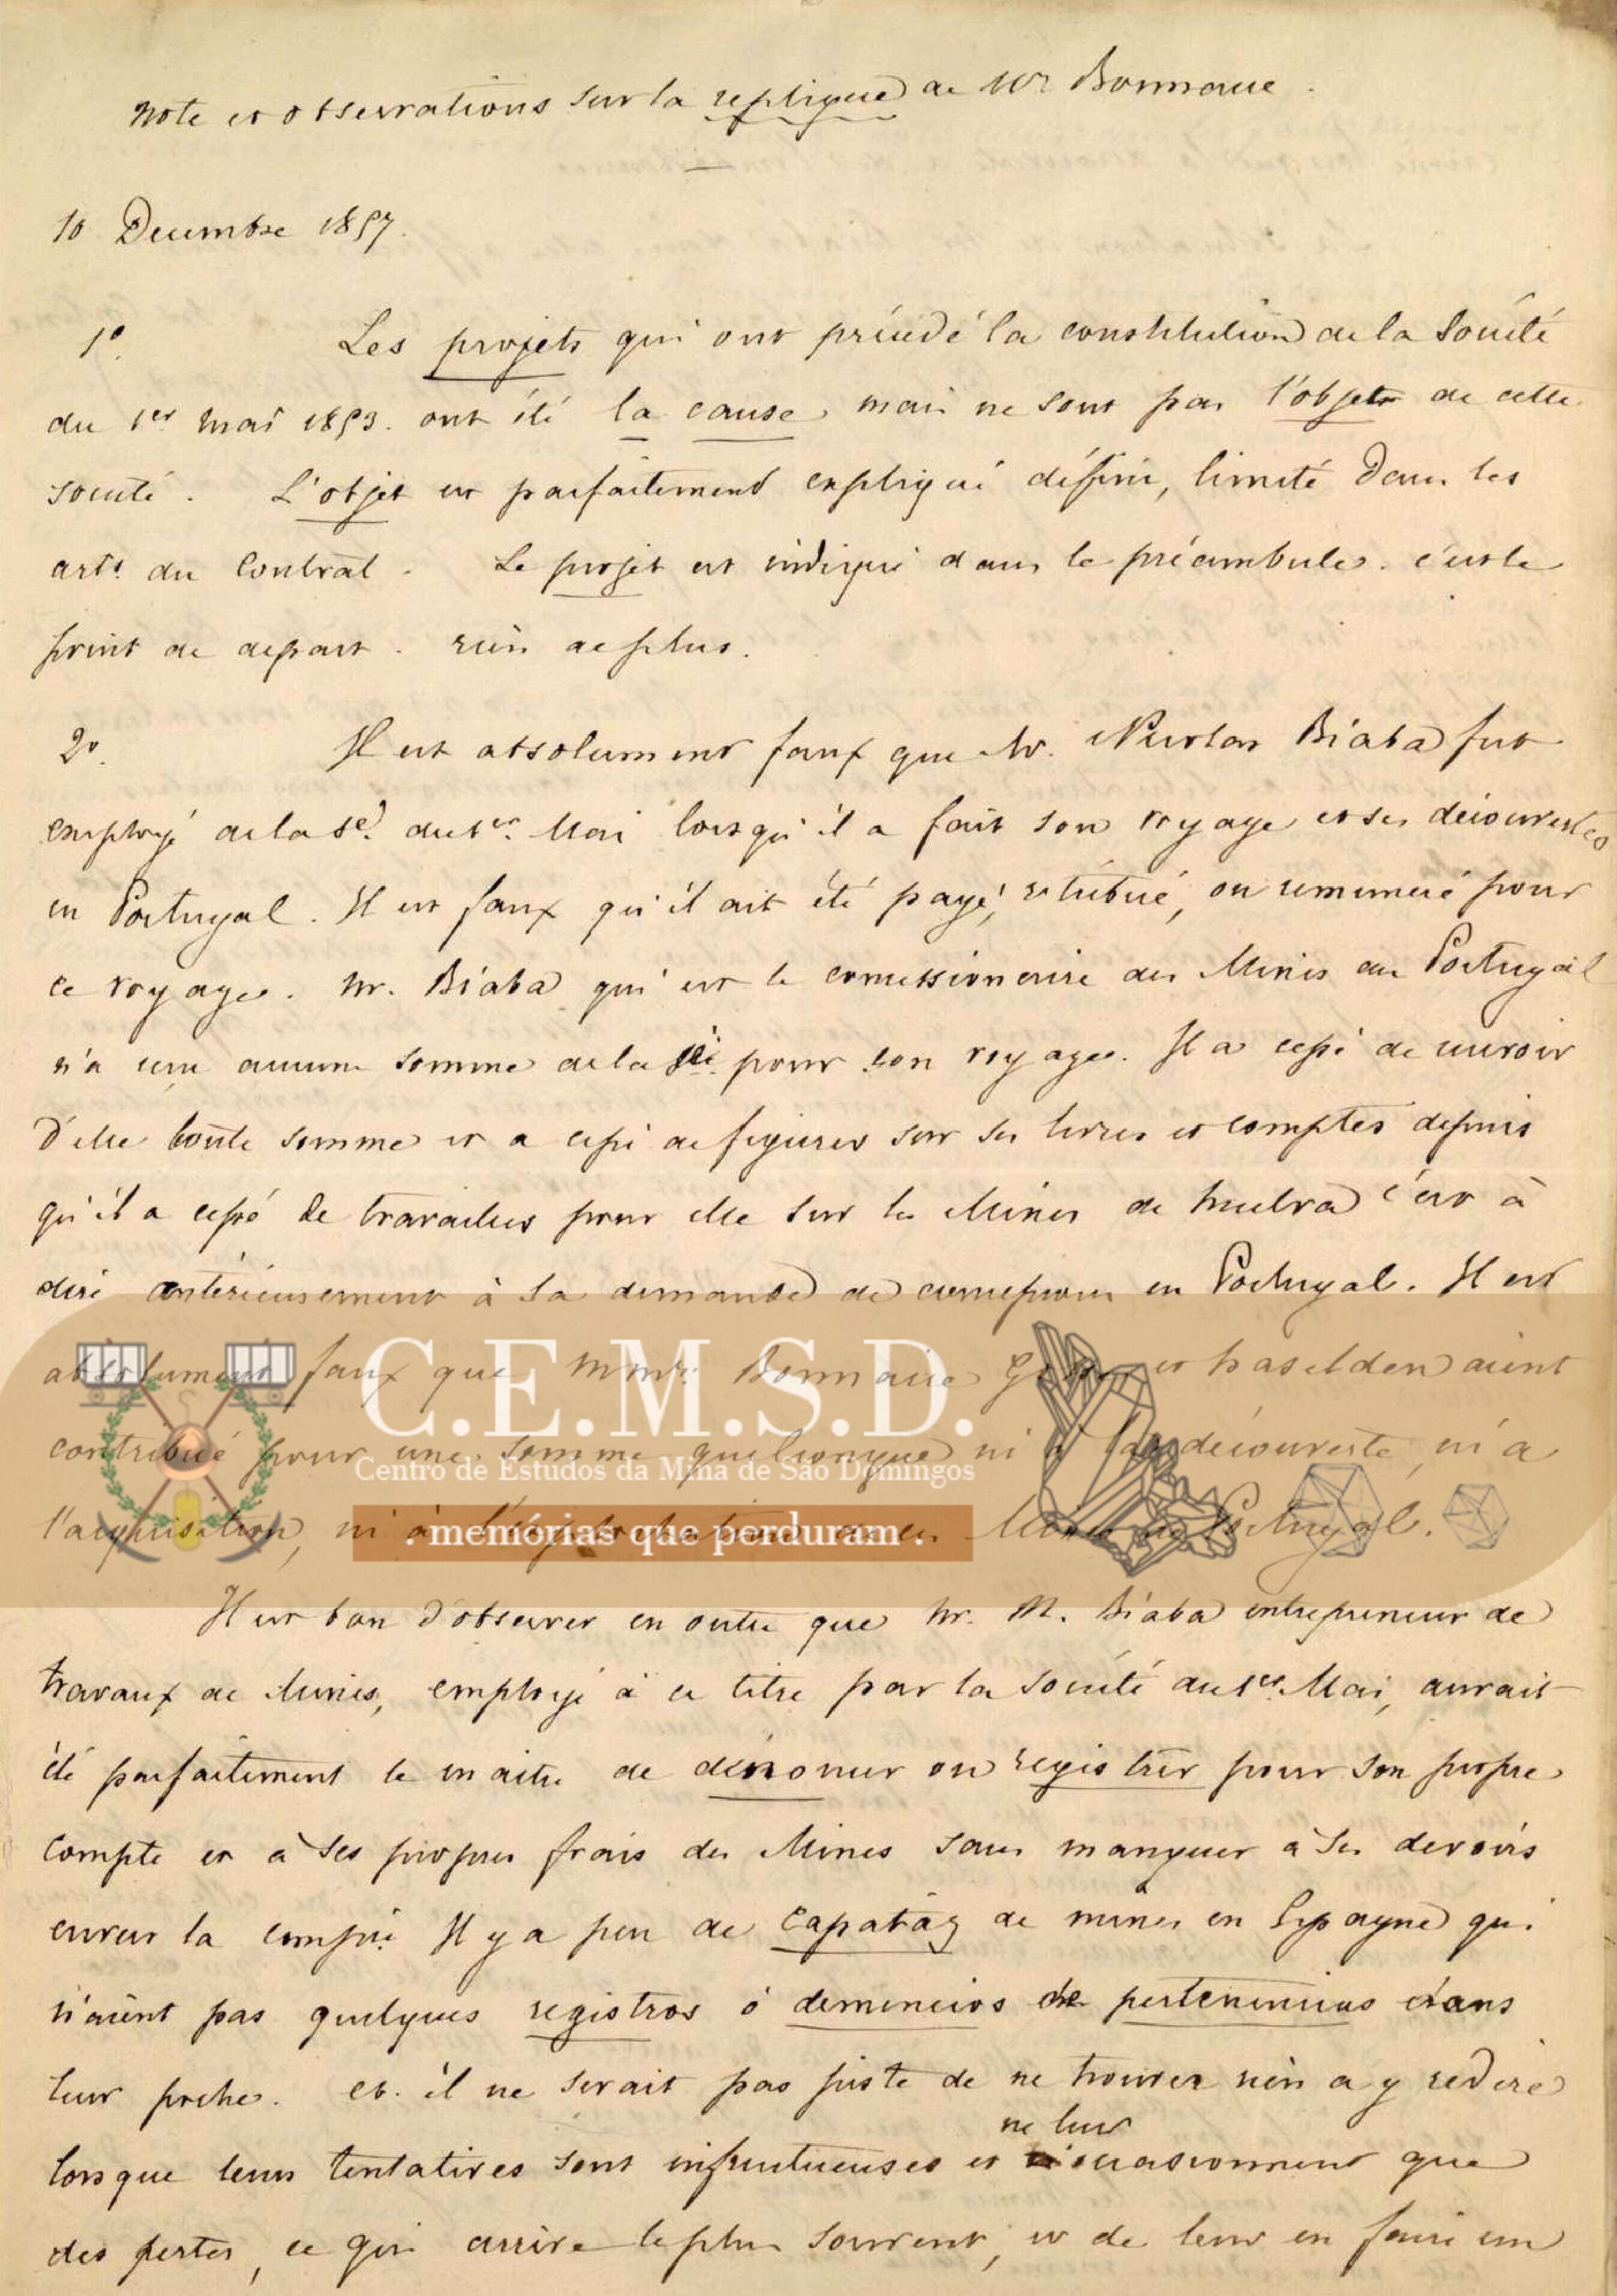 Note et observations sur la replique de Mr Bonnaire.
10 Decembre 1857.
1o. Les projets qui ont précédé la constitution de la Société
du 1er mai 1853. ont été la cause, mais ne sont pas l'objet de cette
société. L'objet est parfaitement expliqué défini, limité dans les
arts. du Contrat. Le projet est indiqué dans le préambule. c'est le
point de depart. rien de plus.
2o. Il est absolument faux que Mr. Nicolas Biaba fut
employé de la Sé. du 1er. Mai lorsqu'il a fait son voyage et ses découvertes
en Portugal. Il est faux qu'il ait été payé, rétribué, ou remuneré pour
ce voyage. Mr. Biaba qui est le concessionnaire des Mines du Portugal
n'a reçu aucune somme de la Sé. pour son voyage. Il a cessé de recevoir
d'elle toute somme et a cessé de figurer sur ses livres et comptes depuis
qu'il a cessé de travailler pour elle sur les Mines de Huelva c'est à
dire antérieurement à sa demande de concession en Portugal. Il est
absolument faux que Mmrs. Bonnaire et Haselden aient
contribué pour une somme quelconque ni à la découverte, ni a
l'acquisition, ni à l'exploitation des Mines de Portugal.
Il est bon d'observer en outre que Mr. N. Biaba entrepreneur de
travaux de Mines, employé à ce titre par la Société du 1er. Mai, aurait
été parfaitement le maitre de dénoncer ou registrer pour son propre
compte et à ses propres frais des Mines sans manquer à ses devoirs
envers la compie. Il y a peu de Capataz de mines en Espagne qui
n'aient pas quelques registros ó denuncios de pertenencias dans
leur poche. et. il ne serait pas juste de ne trouver rien a y redire
lorsque leurs tentatives sont infructueuses et ne leur occasionnent que
des pertes, ce qui arrive le plus souvent, et de leur en faire un
C.E.M.S.D.
Centro de Estudos da Mina de São Domingos
. memórias que perduram .